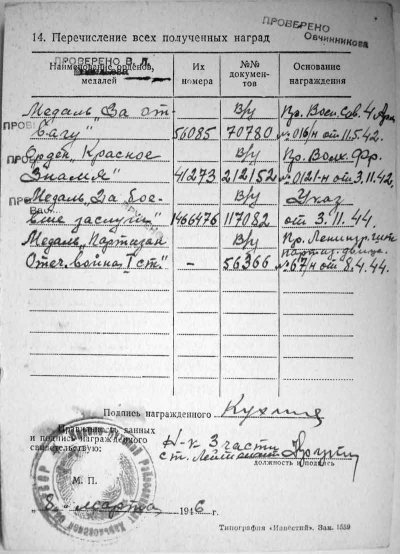 ПРОВЕРЕНО
Овчинникова
14. Перечисление всех полученных наград
ПРОВЕРЕНО В. Л.
Наименование орденов, медалей
Их номера
№№ документов
Основание награждения
Медаль „За от- В/у Пр. Воен. Сов. 4 Арм
вагу" 56085 70780 № 016/н от 11.5.42.
Орден „Красное В/у Пр. Волх. Фр.
Знамя" 41273 212152 № 0121-н от 3.11.42.
Медаль „За бое- В/у Указ
вые заслуги" 1466476 117082 от 3.11.44.
Медаль „Партизан В/у Пр. Ленингр. штаб
партиз. движ.
Отеч. войны I ст." - 56366 № 67/н от 8.4.44.
Подпись награжденного
Правильность данных
и подпись награжденного
свидетельствую:
Н-к 3 части
ст. Лейтенант
должность и подпись
М. П.
"8" марта 1946 г.
Типография «Известий». Зак. 1559